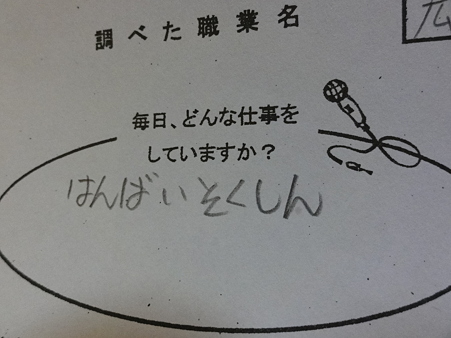 調べた職業名
広
毎日、どんな仕事を
していますか？
はんばいそくしん